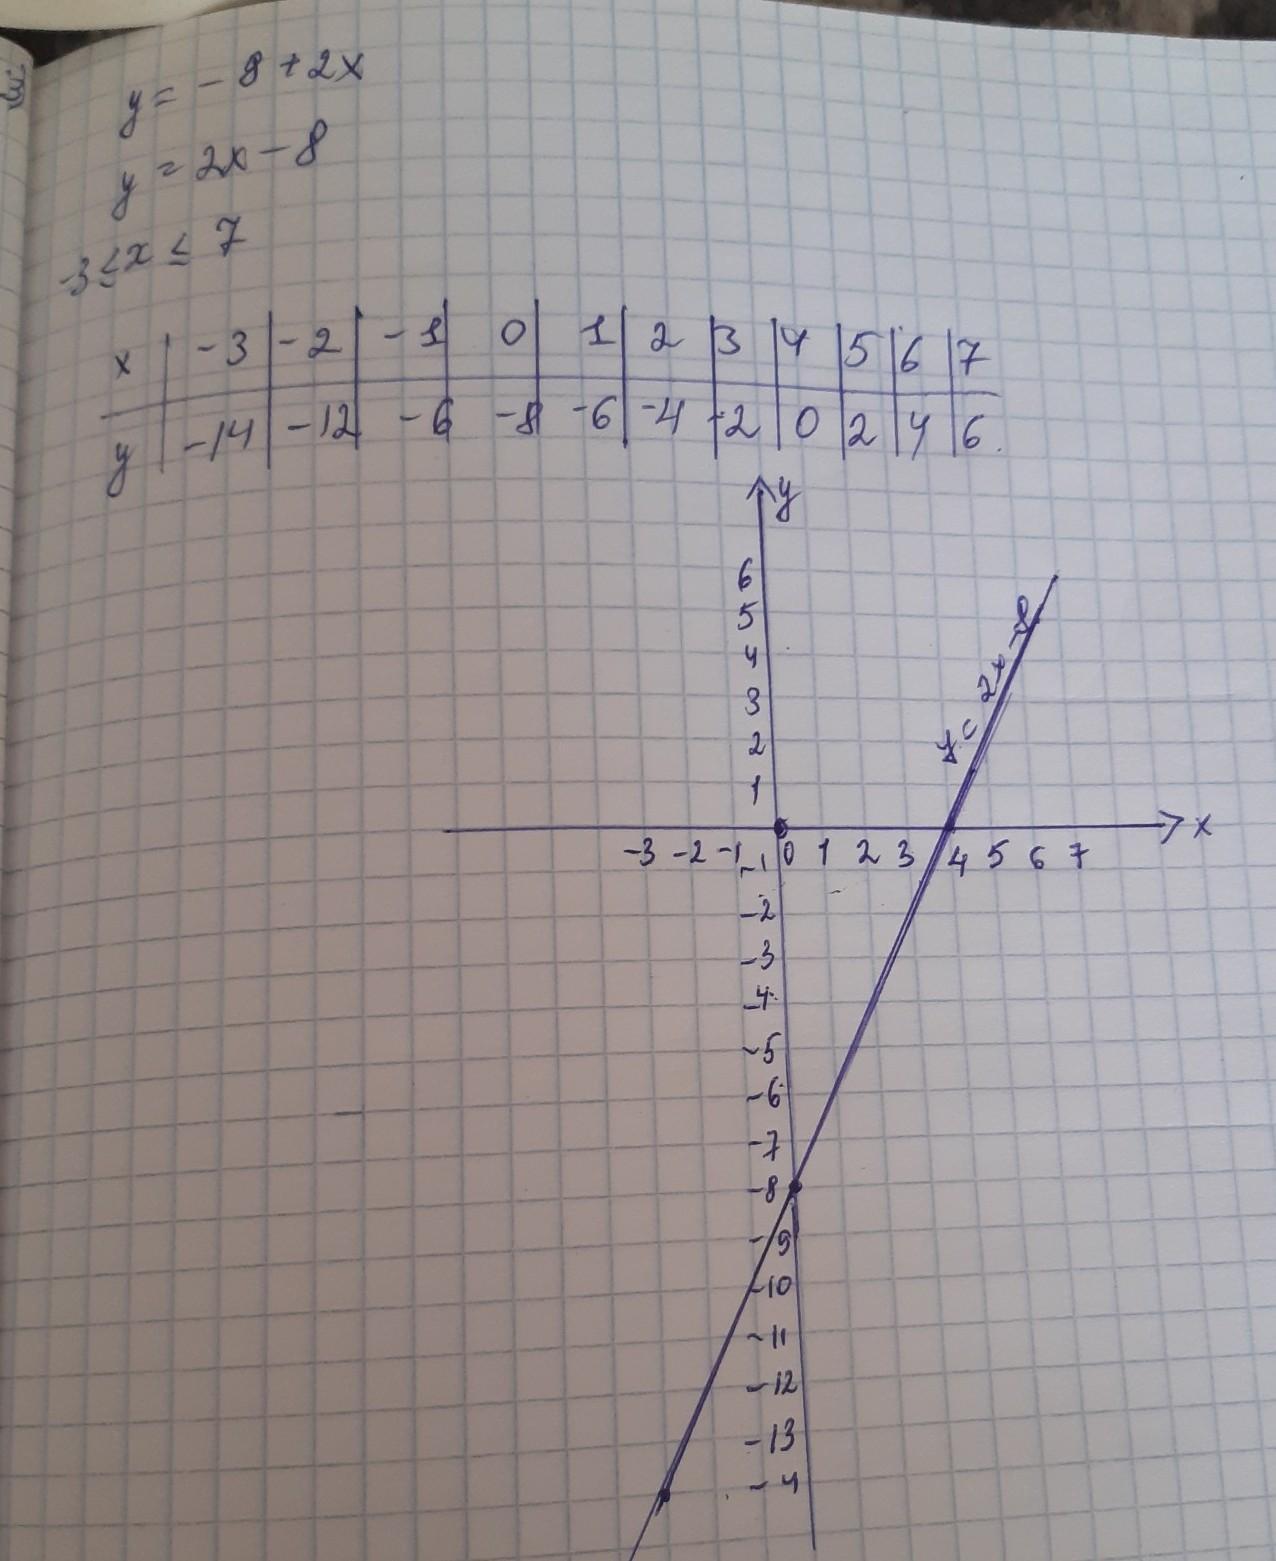 y = - 8 + 2x
y = 2x - 8
-3 ≤ x ≤ 7
x | -3 | -2 | -1 | 0 | 1 | 2 | 3 | 4 | 5 | 6 | 7
y | -14 | -12 | -6 | -8 | -6 | -4 | -2 | 0 | 2 | 4 | 6.
y
6
5
4
3
2
1
y = 2x - 8
-3 -2 -1 0 1 2 3 4 5 6 7 x
-1
-2
-3
-4
-5
-6
-7
-8
-9
-10
-11
-12
-13
-4